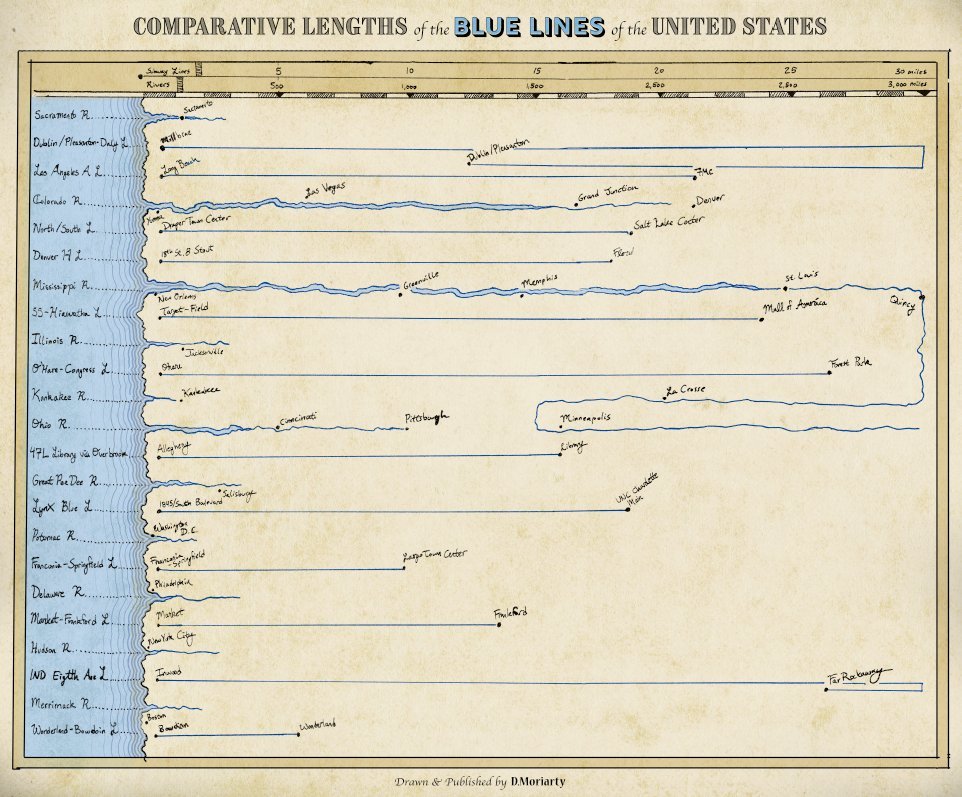 COMPARATIVE LENGTHS of the BLUE LINES of the UNITED STATES
Subway Lines 5 10 15 20 25 30 miles
Rivers 500 1,000 1,500 2,000 2,500 3,000 miles
Sacramento R. Sacramento
Dublin/Pleasanton-Daly L. Millbrae Dublin/Pleasanton
Los Angeles A L. Long Beach 7MC
Colorado R. Yuma Las Vegas Grand Junction Denver
North/South L. Draper Town Center Salt Lake Center
Denver H L. 18th St. & Stout
Mississippi R. New Orleans Greenville Memphis St. Louis Quincy
55-Hiawatha L. Target-Field Mall of America
Illinois R. Jacksonville
O'Hare-Congress L. Ohare Forest Park
Kankakee R. Kankakee La Crosse
Ohio R. Cincinnati Pittsburgh Minneapolis
47L Library via Overbrook Allegheny Library
Great Pee Dee R. Salisbury
LynX Blue L. 1845/South Boulevard UNC Charlotte Main
Potomac R. Washington D.C.
Franconia-Springfield L. Franconia-Springfield Largo Town Center
Delaware R. Philadelphia
Market-Frankford L. Market Frankford
Hudson R. New York City
IND Eighth Ave L. Inwood Far Rockaway
Merrimack R. Boston
Wonderland-Bowdoin L. Bowdoin Wonderland
Drawn & Published by D.Moriarty